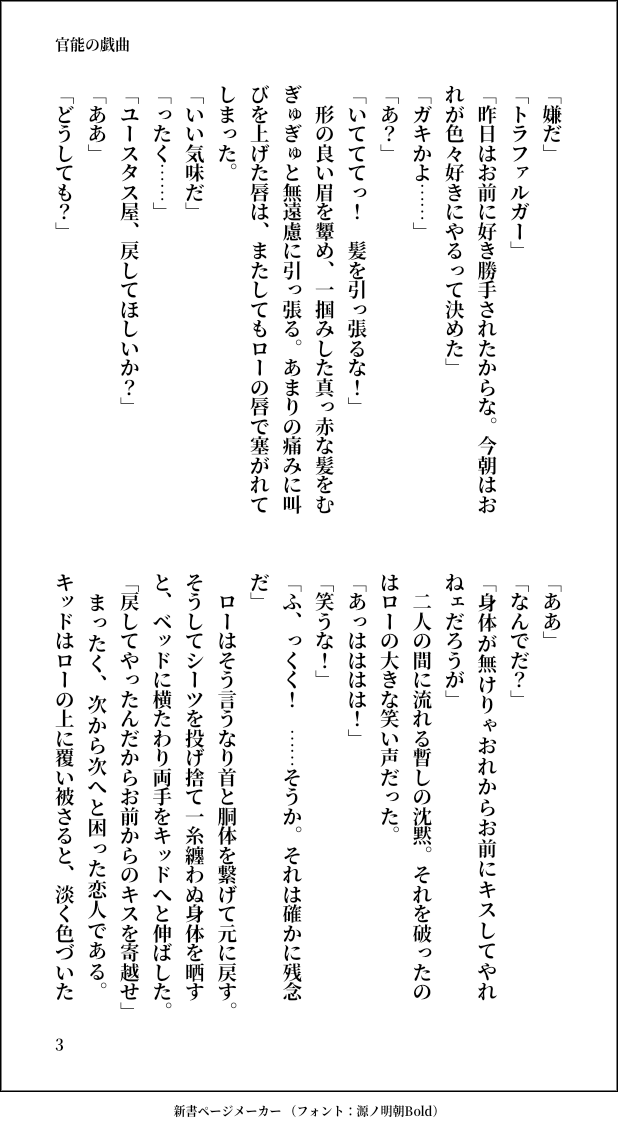 官能の戯曲
「嫌だ」
「トラファルガー」
「昨日はお前に好き勝手されたからな。今朝はお
れが色々好きにやるって決めた」
「ガキかよ……」
「あ？」
「いてててっ！　髪を引っ張るな！」
　形の良い眉を顰め、一掴みした真っ赤な髪をむ
ぎゅぎゅと無遠慮に引っ張る。あまりの痛みに叫
びを上げた唇は、またしてもローの唇で塞がれて
しまった。
「いい気味だ」
「ったく……」
「ユースタス屋、戻してほしいか？」
「ああ」
「どうしても？」
「ああ」
「なんでだ？」
「身体が無けりゃおれからお前にキスしてやれ
ねェだろうが」
　二人の間に流れる暫しの沈黙。それを破ったの
はローの大きな笑い声だった。
「あっはははは！」
「笑うな！」
「ふ、っくく！　……そうか。それは確かに残念
だ」
　ローはそう言うなり首と胴体を繋げて元に戻す。
そうしてシーツを投げ捨て一糸纏わぬ身体を晒す
と、ベッドに横たわり両手をキッドへと伸ばした。
「戻してやったんだからお前からのキスを寄越せ」
　まったく、次から次へと困った恋人である。
キッドはローの上に覆い被さると、淡く色づいた
3
新書ページメーカー（フォント：源ノ明朝Bold）